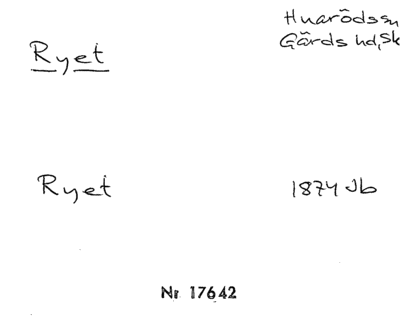 Ryet
Huarödssn
Gärds hd, Sk
Ryet
1874 Jb
Nr 17642